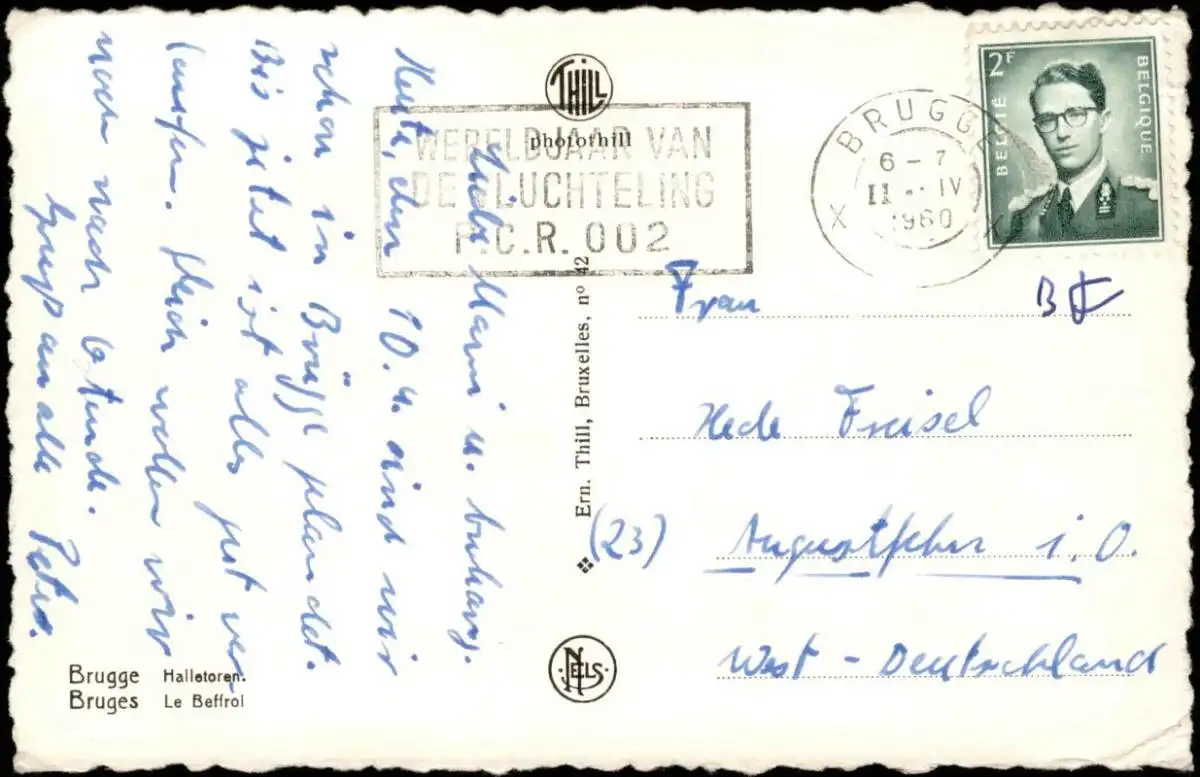 Liebe Mami u. Anhang.
Heute, den 10.4. sind wir
schon in Brügge
Bis jetzt ist alles gut ver-
laufen. Gleich wollen wir
noch nach
Gruß an alle Peter.
Brugge Halletoren.
Bruges Le Beffroi
THILL
photothill
WERELDJAAR VAN
DE VLUCHTELING
P.C.R. 002
Ern. Thill, Bruxelles, nº 42
NELS
BRUGGE
6 - 7
11 IV
1960
X X
2F
BELGIË
BELGIQUE
Frau
Hede Freisel
(23) Augustfehn i. O.
West - Deutschland